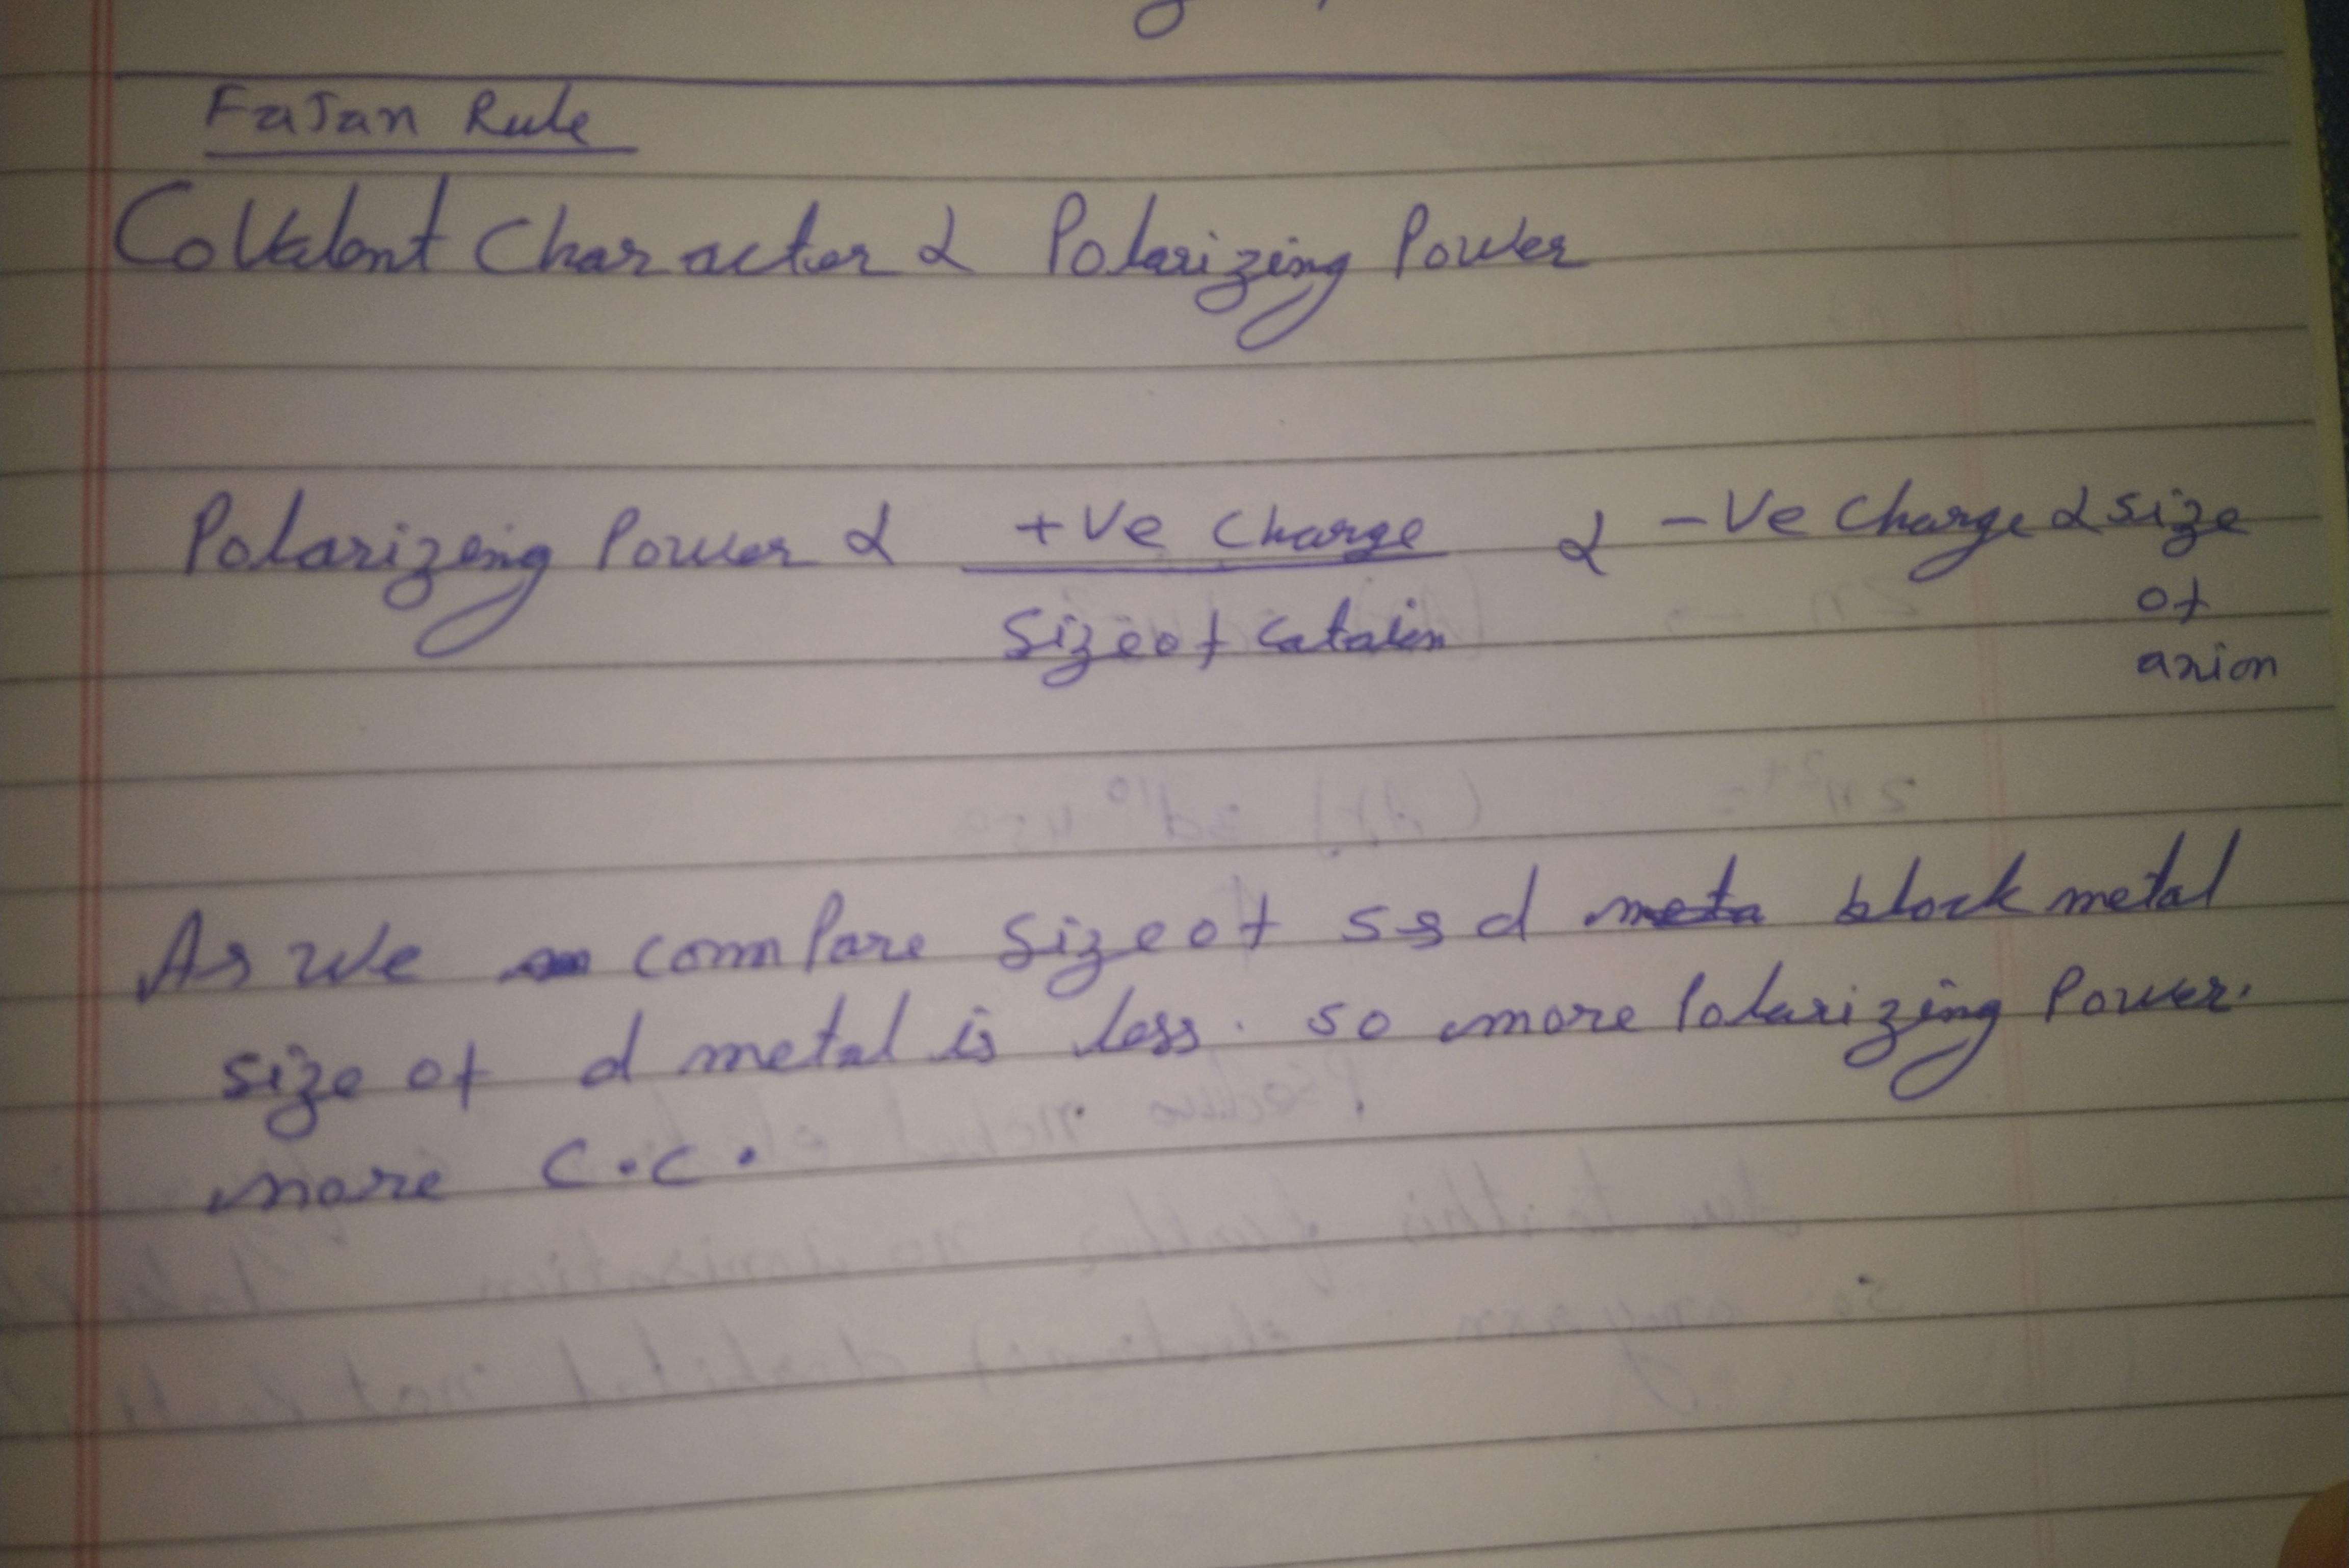 FaJan Rule
Covalent Character α Polarizing Power
Polarizing Power α +Ve Charge / Size of Cataion α -Ve Charge α size of anion
As we compare Size of s & d block metal
size of d metal is less. so more Polarizing Power.
more C.C.